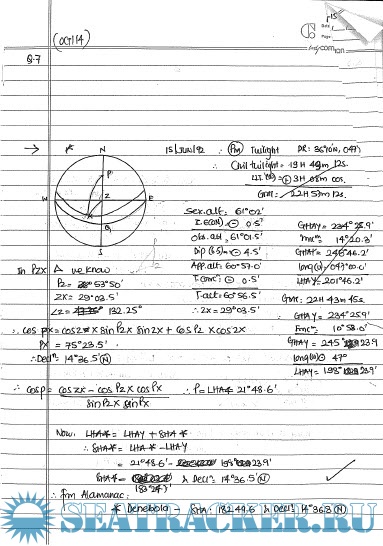 (OCT14)
Q.7
15
Date
Page
mycompanion
→ P* 15/JUN/92 ∴ (Pm) Twilight DR: 36°10'N, 047°
∴ Civil twilight = 19H 49m 12s.
L.I.T (W) = ⊕ 3H 08m 00s.
GMT: 22H 57m 12s.
N
P
W Z E
X
Q
S
Sex. alt: 61°02'
I.E(ON) ⊖ 0.5'
Obs. alt: 61°01.5'
Dip (6.5) = ⊖ 4.5'
App. alt = 60°57.0'
T. corrⁿ: ⊖ 0.5'
T. alt = 60°56.5'
∴ ZX = 29°03.5'
GHAγ = 234°25.9'
Incⁿ: 14°20.3'
GHAγ = 248°46.2'
long(w) 047°00.0'
LHAγ = 201°46.2'
GMT: 22H 43m 45s
GHAγ = 234°25.9'
Incⁿ: 10°58.0'
GHAγ = 245°23.9
long(w)⊖ 47°
LHAγ = 198°23.9'
In PZX Δ we know
PZ = 53°50'
ZX = 29°03.5'
∠Z = 132.25°
∴ cos PX = cos Z x sin PZ x sin ZX + cos PZ x cos ZX
PX = 75°23.5'
∴ Declⁿ: 14°36.5'(N)
∴ cos P = cos ZX - cos PZ x cos PX ∴ P = LHA* 21°48.6'
sin PZ x sin PX
Now, LHA* = LHAγ + SHA*
∴ SHA* = LHA* - LHAγ
= 21°48.6' - 198°23.9'
SHA* = & Declⁿ: 14°36.5'(N)
183°24.7'
∴ from Alamanac:
* Denebola - SHA: 182°49.6' & Declⁿ: 14°36.8'(N)
SEATRACKER.RU